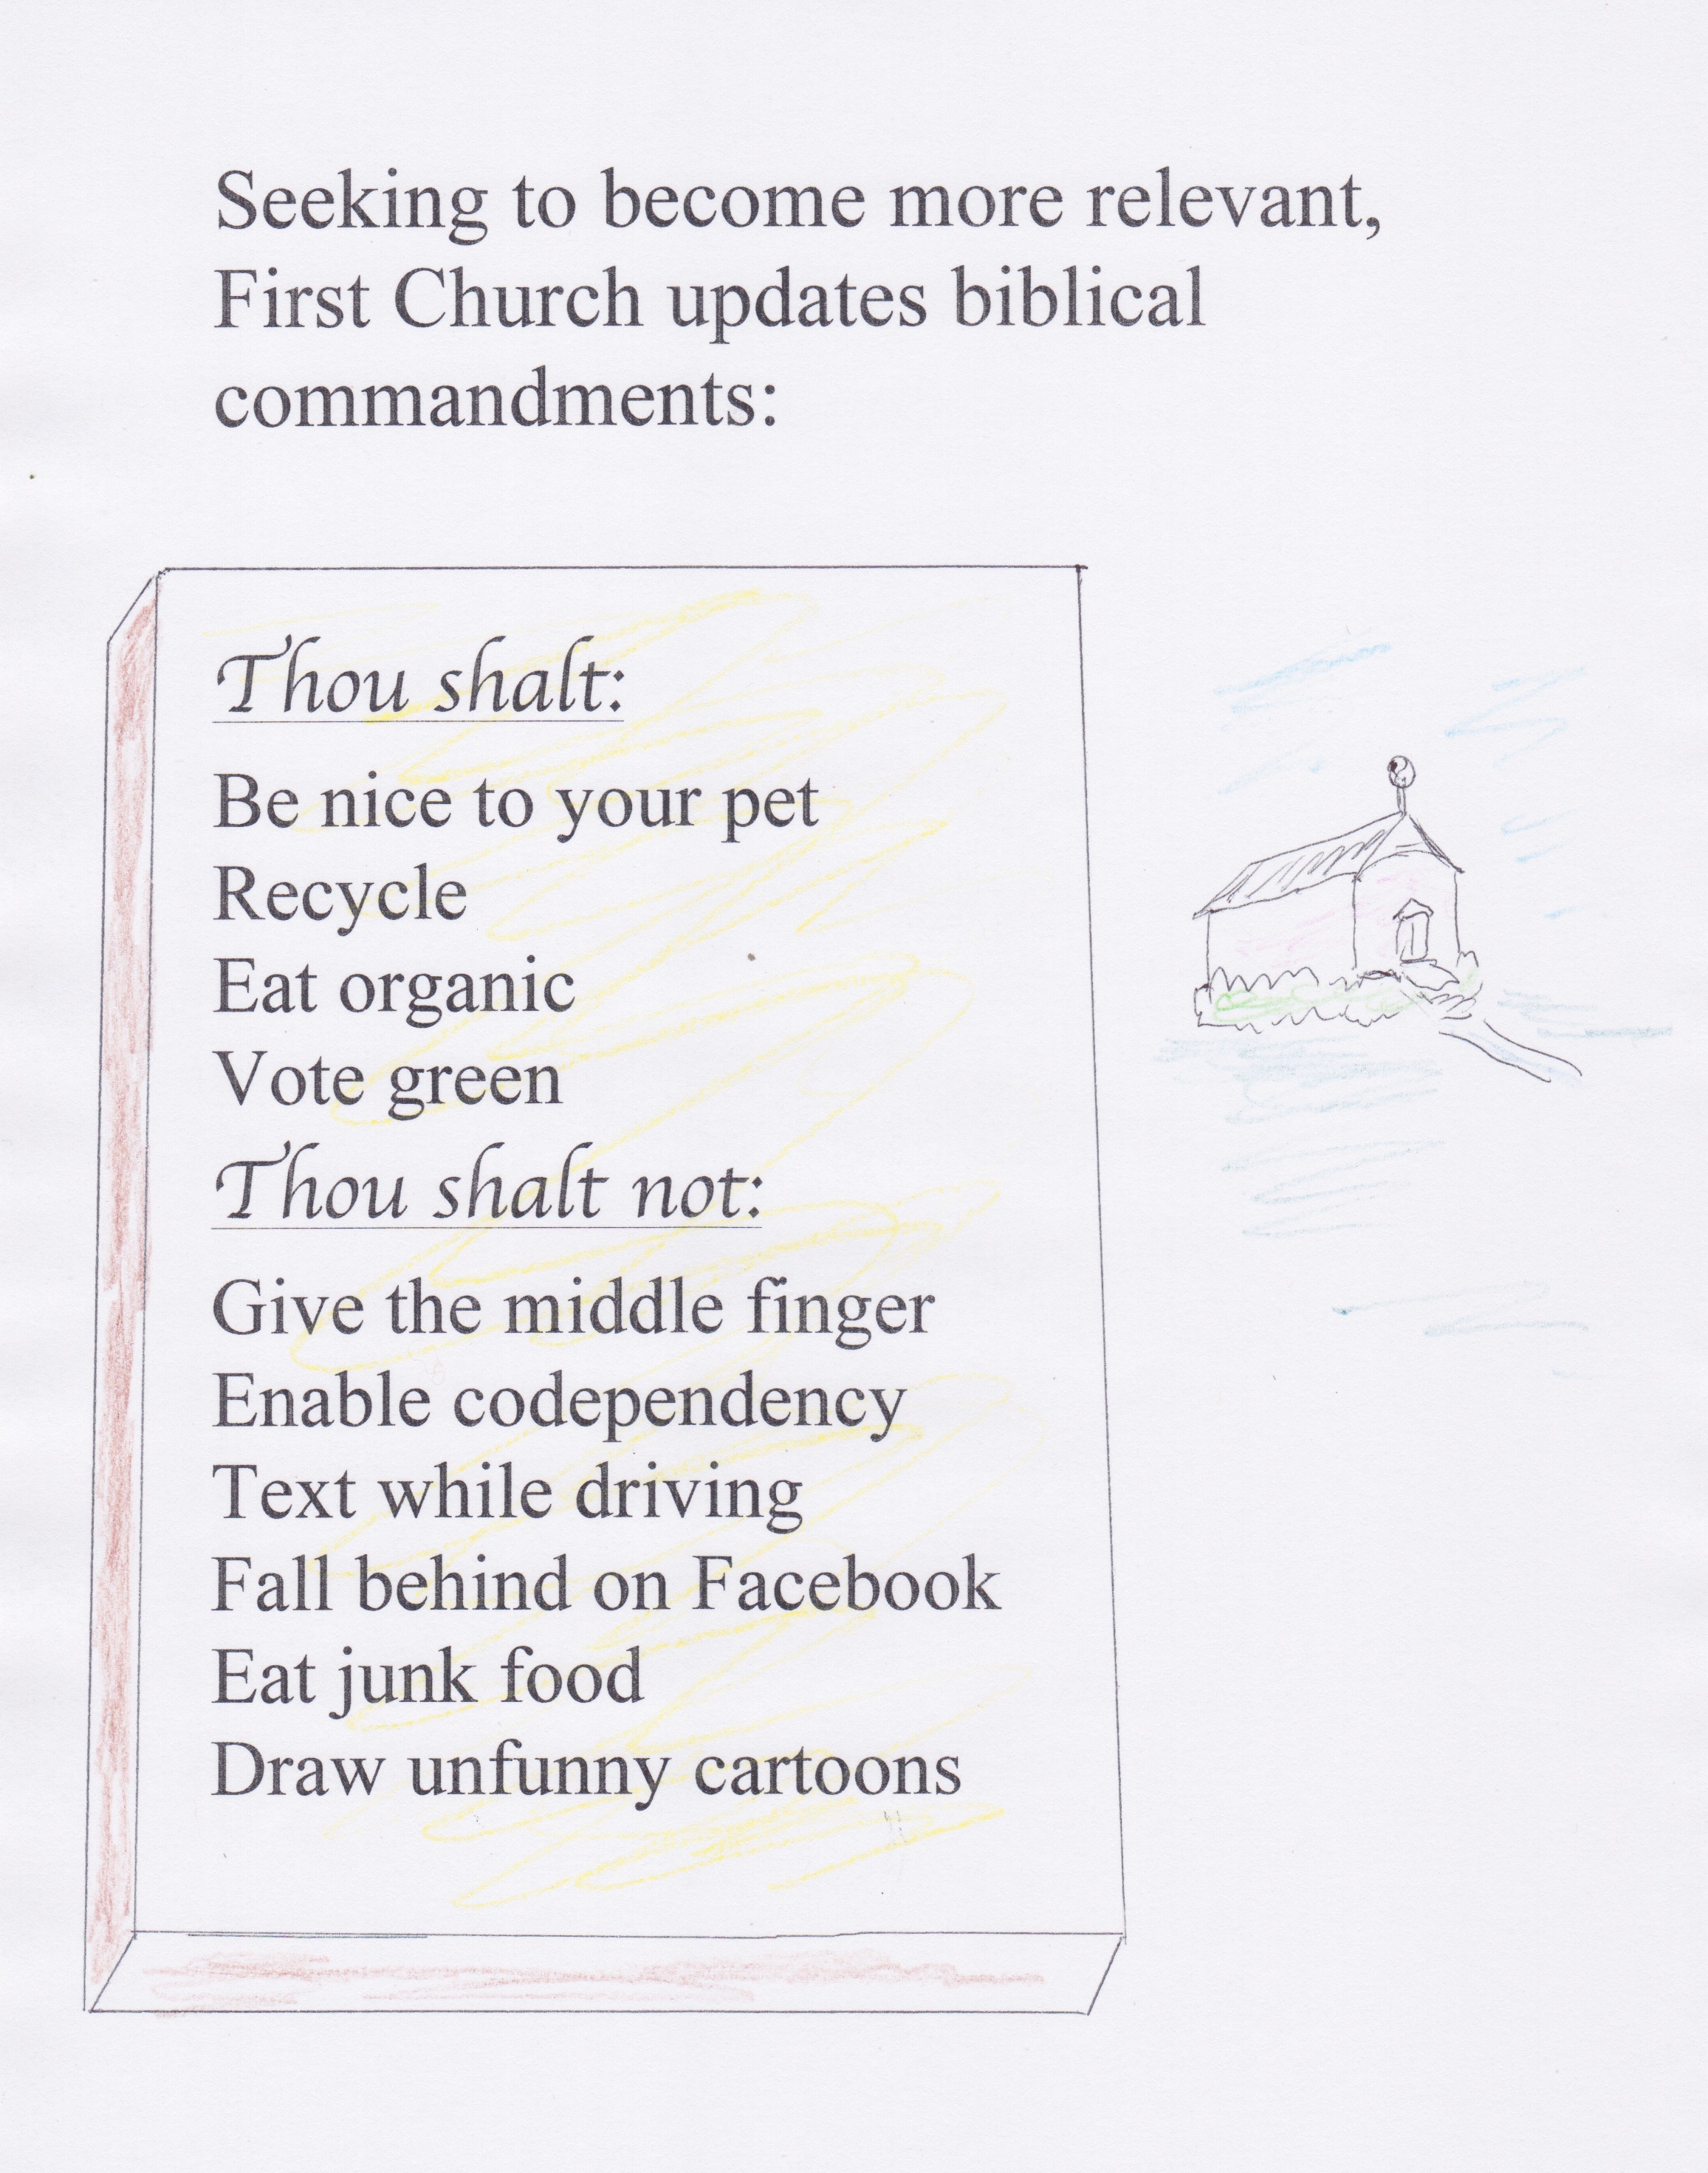 Seeking to become more relevant,
First Church updates biblical
commandments:
Thou shalt:
Be nice to your pet
Recycle
Eat organic
Vote green
Thou shalt not:
Give the middle finger
Enable codependency
Text while driving
Fall behind on Facebook
Eat junk food
Draw unfunny cartoons